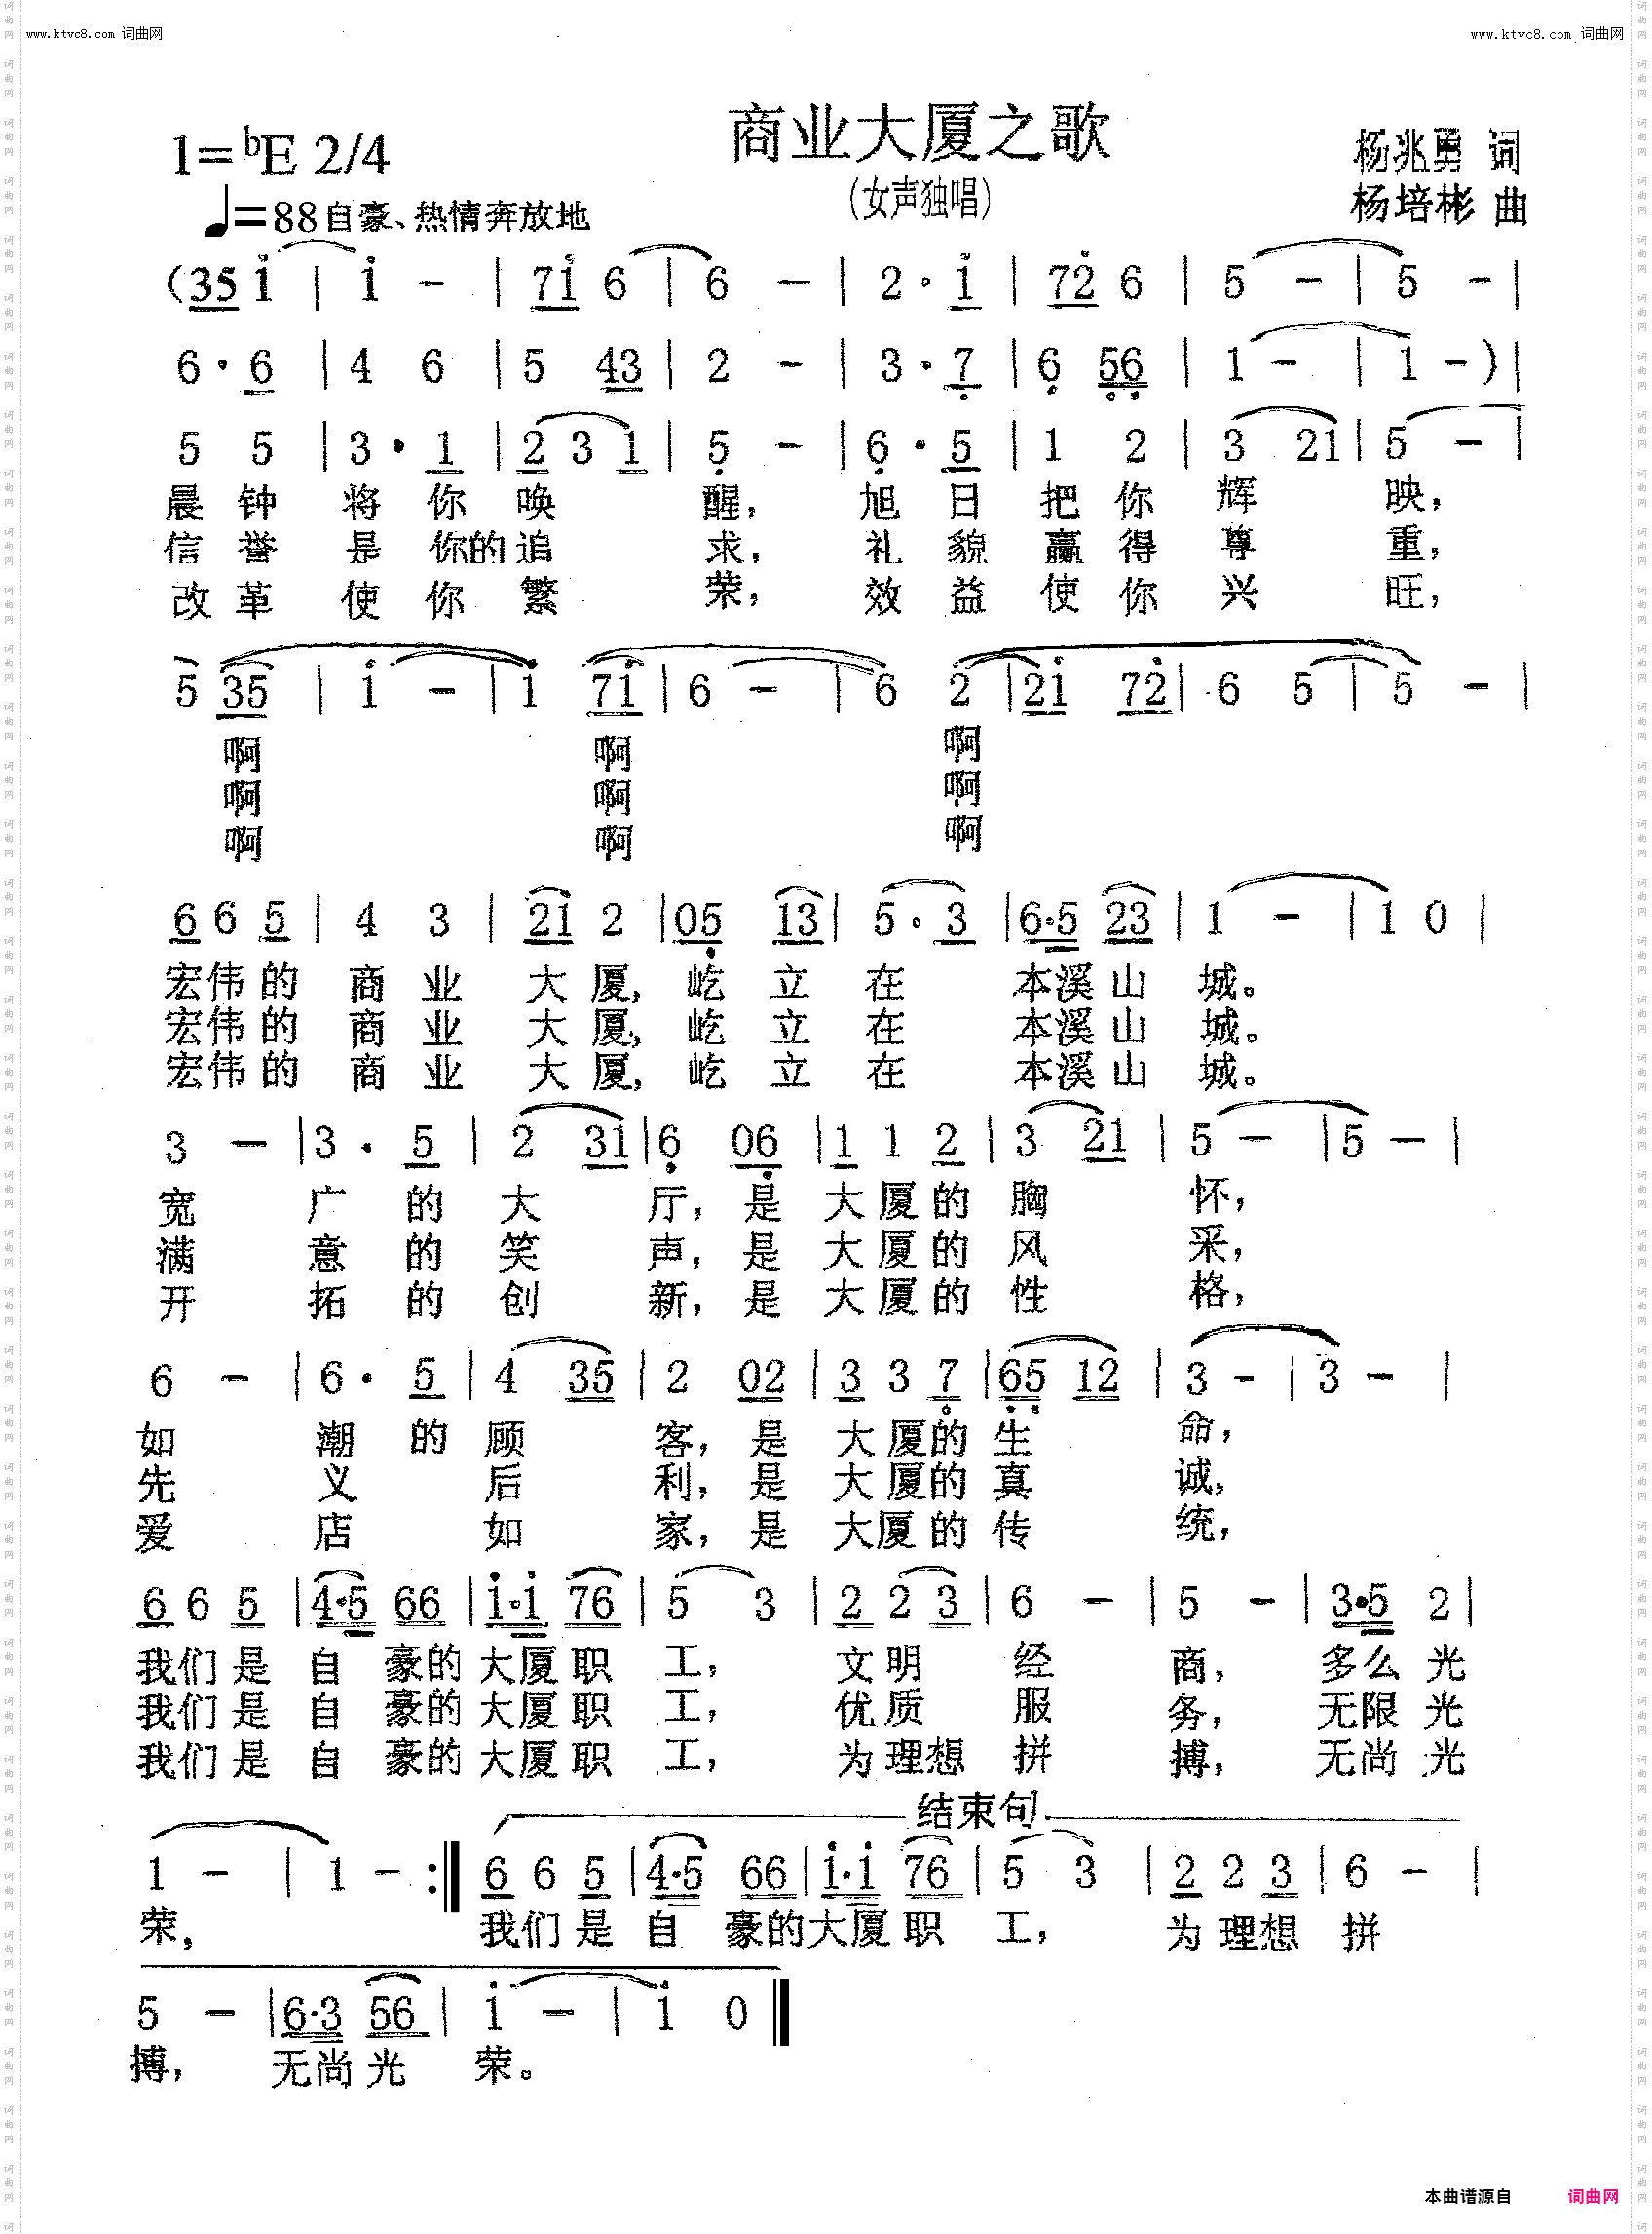 www.ktvc8.com 词曲网
www.ktvc8.com 词曲网
商业大厦之歌
1=bE 2/4
(女声独唱)
杨兆勇 词
杨培彬 曲
♩=88 自豪、热情奔放地
(35 1 | 1 - | 71 6 | 6 - | 2 · 1 | 72 6 | 5 - | 5 - |
6 · 6 | 4 6 | 5 43 | 2 - | 3 · 7 | 6 56 | 1 - | 1 - )|
5 5 | 3 · 1 | 2 3 1 | 5 - | 6 · 5 | 1 2 | 3 21 | 5 - |
晨钟将你唤醒,旭日把你辉映,
信誉是你的追求,礼貌赢得尊重,
改革使你繁荣,效益使你兴旺,
5 35 | 1 - | 1 71 | 6 - | 6 2 | 21 72 | 6 5 | 5 - |
啊 啊 啊
啊 啊 啊
啊 啊 啊
6 6 5 | 4 3 | 21 2 | 05 13 | 5 · 3 | 6·5 23 | 1 - | 1 0 |
宏伟的商业大厦,屹立在本溪山城。
宏伟的商业大厦,屹立在本溪山城。
宏伟的商业大厦,屹立在本溪山城。
3 - | 3 · 5 | 2 31 | 6 06 | 1 1 2 | 3 21 | 5 - | 5 - |
宽广的大厅,是大厦的胸怀,
满意的笑声,是大厦的风采,
开拓的创新,是大厦的性格,
6 - | 6 · 5 | 4 35 | 2 02 | 3 3 7 | 65 12 | 3 - | 3 - |
如潮的顾客,是大厦的生命,
先义后利,是大厦的真诚,
爱店如家,是大厦的传统,
6 6 5 | 4·5 66 | 1·1 76 | 5 3 | 2 2 3 | 6 - | 5 - | 3·5 2 |
我们是自豪的大厦职工,文明经商,多么光
我们是自豪的大厦职工,优质服务,无限光
我们是自豪的大厦职工,为理想拼搏,无尚光
结束句
1 - | 1 - :‖ 6 6 5 | 4·5 66 | 1·1 76 | 5 3 | 2 2 3 | 6 - |
荣,我们是自豪的大厦职工,为理想拼
5 - | 6·3 56 | 1 - | 1 0 ‖
搏,无尚光荣。
本曲谱源自 词曲网